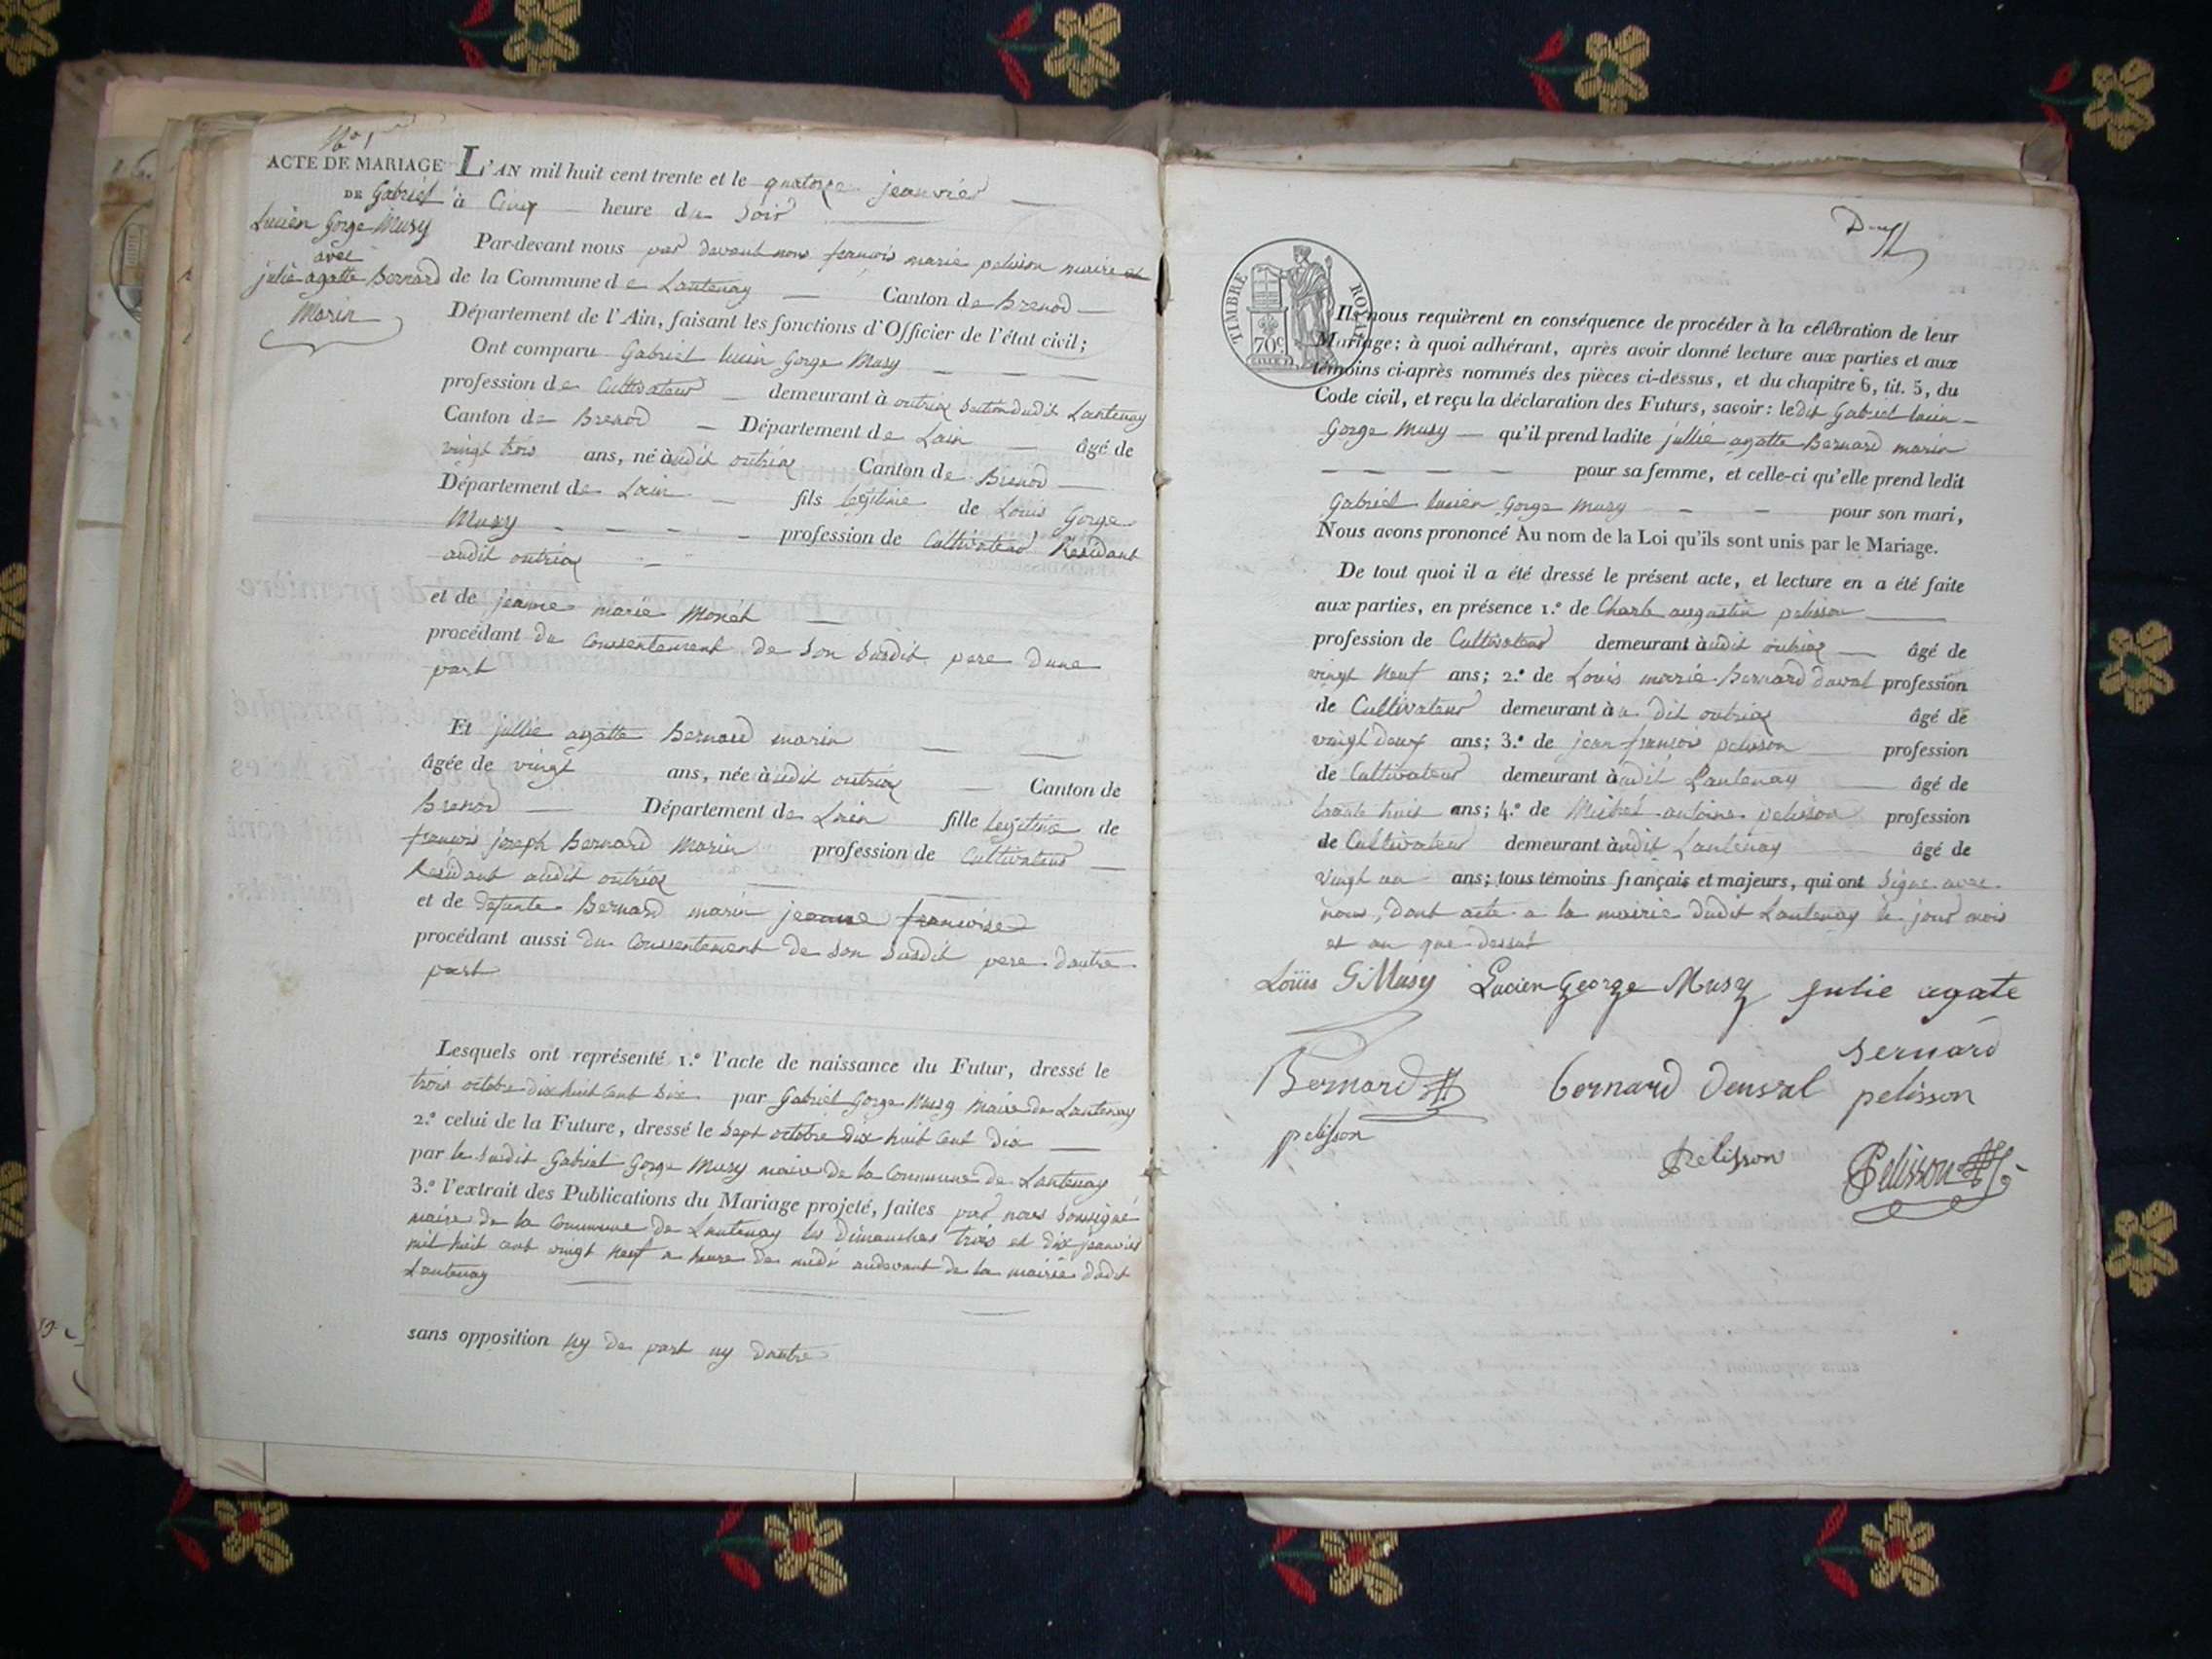 N° 1
ACTE DE MARIAGE
DE Gabriel
Lucien Gorge Musy
avec
julie agatte Bernard
Marin
L'AN mil huit cent trente et le quatorze jeanvier
à Cinq heure du Soir
Par-devant nous par devant nous françois marie pelisson maire
de la Commune de Lantenay Canton de Brenod
Département de l'Ain, faisant les fonctions d'Officier de l'état civil;
Ont comparu Gabriel lucien Gorge Musy
profession de Cultivateur demeurant à outriax Section dudit Lantenay
Canton de Brenod Département de Lain âgé de
vingt trois ans, né àudit outriax Canton de Brenod
Département de Lain fils legitime de Louis Gorge
Musy profession de Cultivateur Residant
audit outriax
et de jeanne marie Monet
procédant du Consentement de Son Susdit pere dune
part
Et jullie agatte Bernard marin
âgée de vingt ans, née àudit outriax Canton de
Brenod Département de Lain fille legitime de
françois joseph Bernard Marin profession de Cultivateur
Residant audit outriax
et de defunte Bernard marin jeanne francoise
procédant aussi du Consentement de Son Susdit pere dautre
part
Lesquels ont représenté 1.° l'acte de naissance du Futur, dressé le
trois octobre dix huit Cent Six par Gabriel Gorge Musy Maire de Lantenay
2.° celui de la Future, dressé le Sept octobre dix huit Cent dix
par le Susdit Gabriel Gorge Musy maire de la Commune de Lantenay
3.° l'extrait des Publications du Mariage projeté, faites par nous Soussigné
maire de la Commune de Lantenay les dimanches trois et dix jeanvier
mil huit cent vingt neuf a heure de midi audevant de la mairie dudit
Lantenay
sans opposition ny de part ny dautre
TIMBRE ROYAL
70c
Ils nous requièrent en conséquence de procéder à la célébration de leur
Mariage; à quoi adhérant, après avoir donné lecture aux parties et aux
témoins ci-après nommés des pièces ci-dessus, et du chapitre 6, tit. 5, du
Code civil, et reçu la déclaration des Futurs, savoir: ledit Gabriel lucien
Gorge Musy qu'il prend ladite jullie agatte Bernard marin
pour sa femme, et celle-ci qu'elle prend ledit
Gabriel lucien Gorge Musy pour son mari,
Nous avons prononcé Au nom de la Loi qu'ils sont unis par le Mariage.
De tout quoi il a été dressé le présent acte, et lecture en a été faite
aux parties, en présence 1.° de Charle augustin pelisson
profession de Cultivateur demeurant àudit outriax âgé de
vingt Neuf ans; 2.° de Louis marie Bernard daval profession
de Cultivateur demeurant àu dit outriax âgé de
vingt Deux ans; 3.° de jean françois pelisson profession
de Cultivateur demeurant àudit Lantenay âgé de
trante huit ans; 4.° de Michel antoine pelisson profession
de Cultivateur demeurant àudit Lantenay âgé de
Vingt un ans; tous témoins français et majeurs, qui ont Signe avec
nous, dont acte a la mairie dudit Lantenay le jour mois
et an que dessus
Loüis G Musy Lucien George Musy julie agate
Bernard
Bernard bernard pelisson
pelisson
Pelisson Pelisson